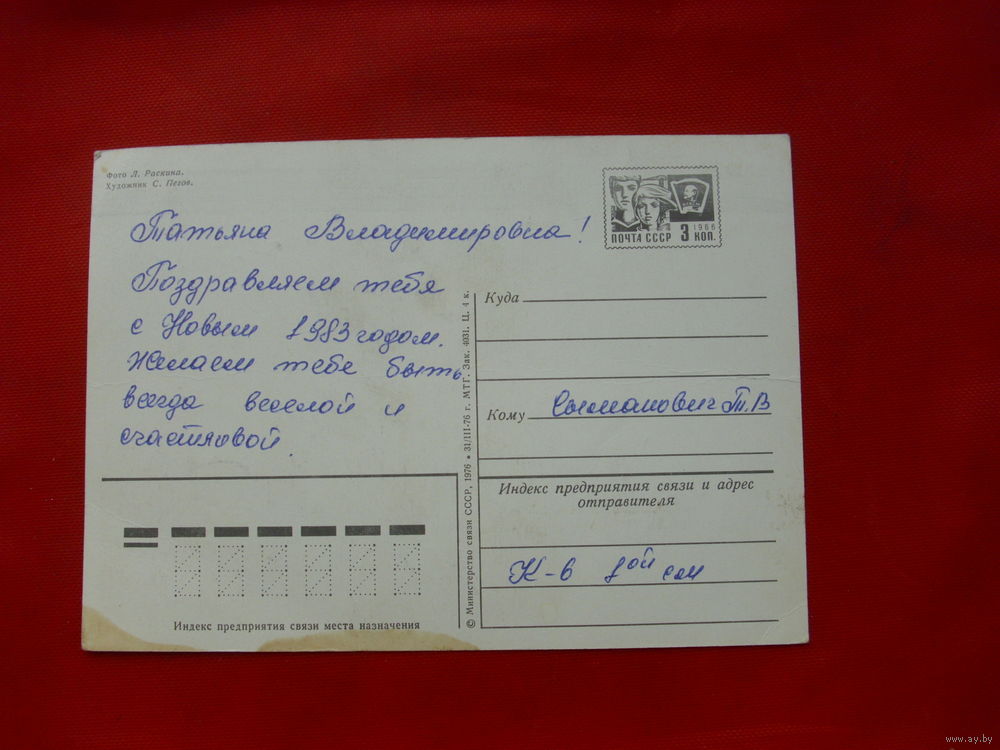 Фото Л. Раскина.
Художник С. Пегов.
Татьяна Владимировна!
Поздравляем тебя
с Новым 1983 годом.
Желаем тебе быть
всегда веселой и
счастливой.
ПОЧТА СССР 3 КОП.
1966
Куда
Кому Сыманович Т.В
Индекс предприятия связи и адрес
отправителя
К-в
© Министерство связи СССР, 1976 • 31/III-76 г. МТГ. Зак. 4031. Ц. 4 к.
Индекс предприятия связи места назначения
www.ay.by